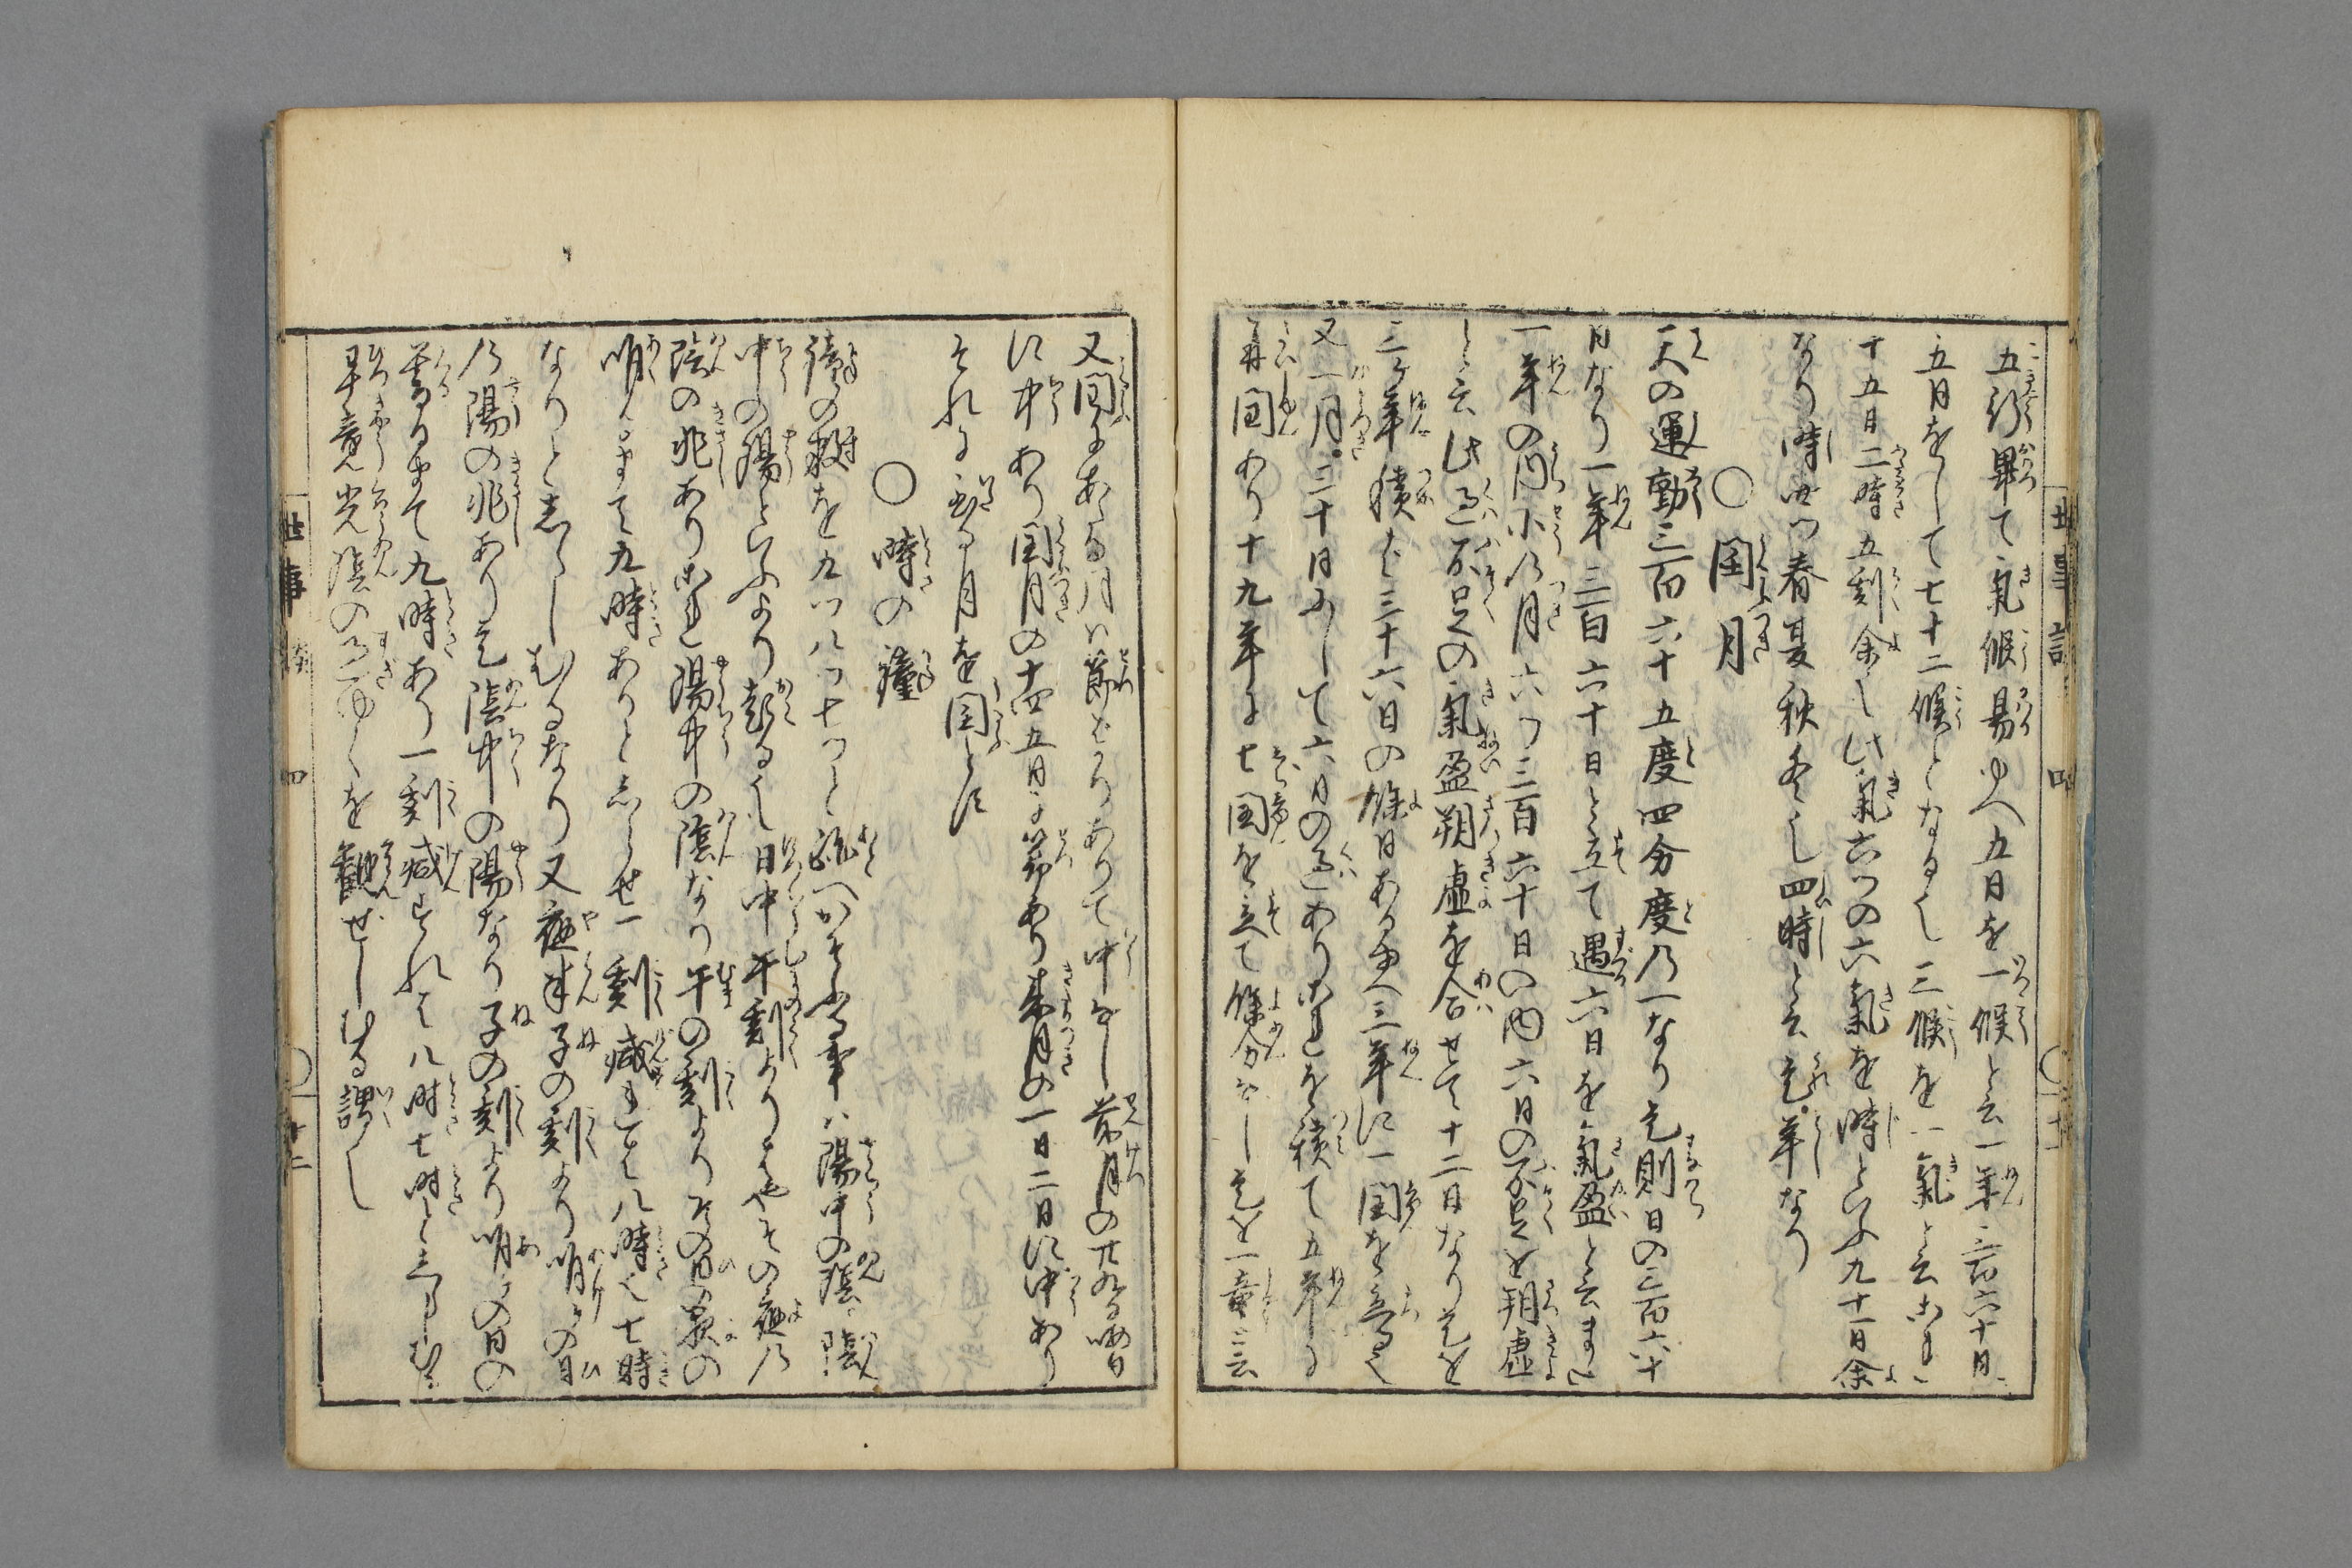 五行畢て氣候易ゆへ五日を一候と云一年三百六十日
五日をして七十二候となる也三候を一氣と云これ
十五日二時五刻余也此氣六つの六氣を時といふ九十一日余
なり時四つ春夏秋冬也四時と云是年なり
○閏月
天の運動三百六十五度四分度乃一なり是則日の三百六十
日なり一年三百六十日と立て過六日を氣盈と云また
一年の内小乃月六つ三百六十日の内六日の不足を朔虚
と云此過不足の氣盈朔虚を合せて十二日なり是を
三ケ年積ば三十六日の餘日あるゆへ三年に一閏を立る也
又一月三十日にして六日の過ありこれを積て五年に
再閏あり十九年に七閏を立て餘分なし是を一章と云
又閏にあたる月は節ばかりありて中なし前月の廿九日晦日
に中あり閏月の十四五日に節あり来月の一日二日に中あり
それに至る月を閏とす
○時の鐘
鐘の数を九つ八つ七つと跡へかぞふる事は陽中の陰陰
中の陽といふより起る也日中午刻よりはやその夜乃
陰の兆ありこれ陽中の陰なり午の刻よりその日暮の
明るまで九時ありとしらせ一刻減ずれば八時也七時
なりとしらしむるなり又夜半子の刻より明けの日
乃陽の兆あり是陰中の陽なり子の刻より明けの日の
暮るまで九時あり一刻減ずれば八時七時としらしむ
畢竟光陰の過ゆくを観ぜしむる謂也
世事談 四 ○十一
世事談 四 ○十二